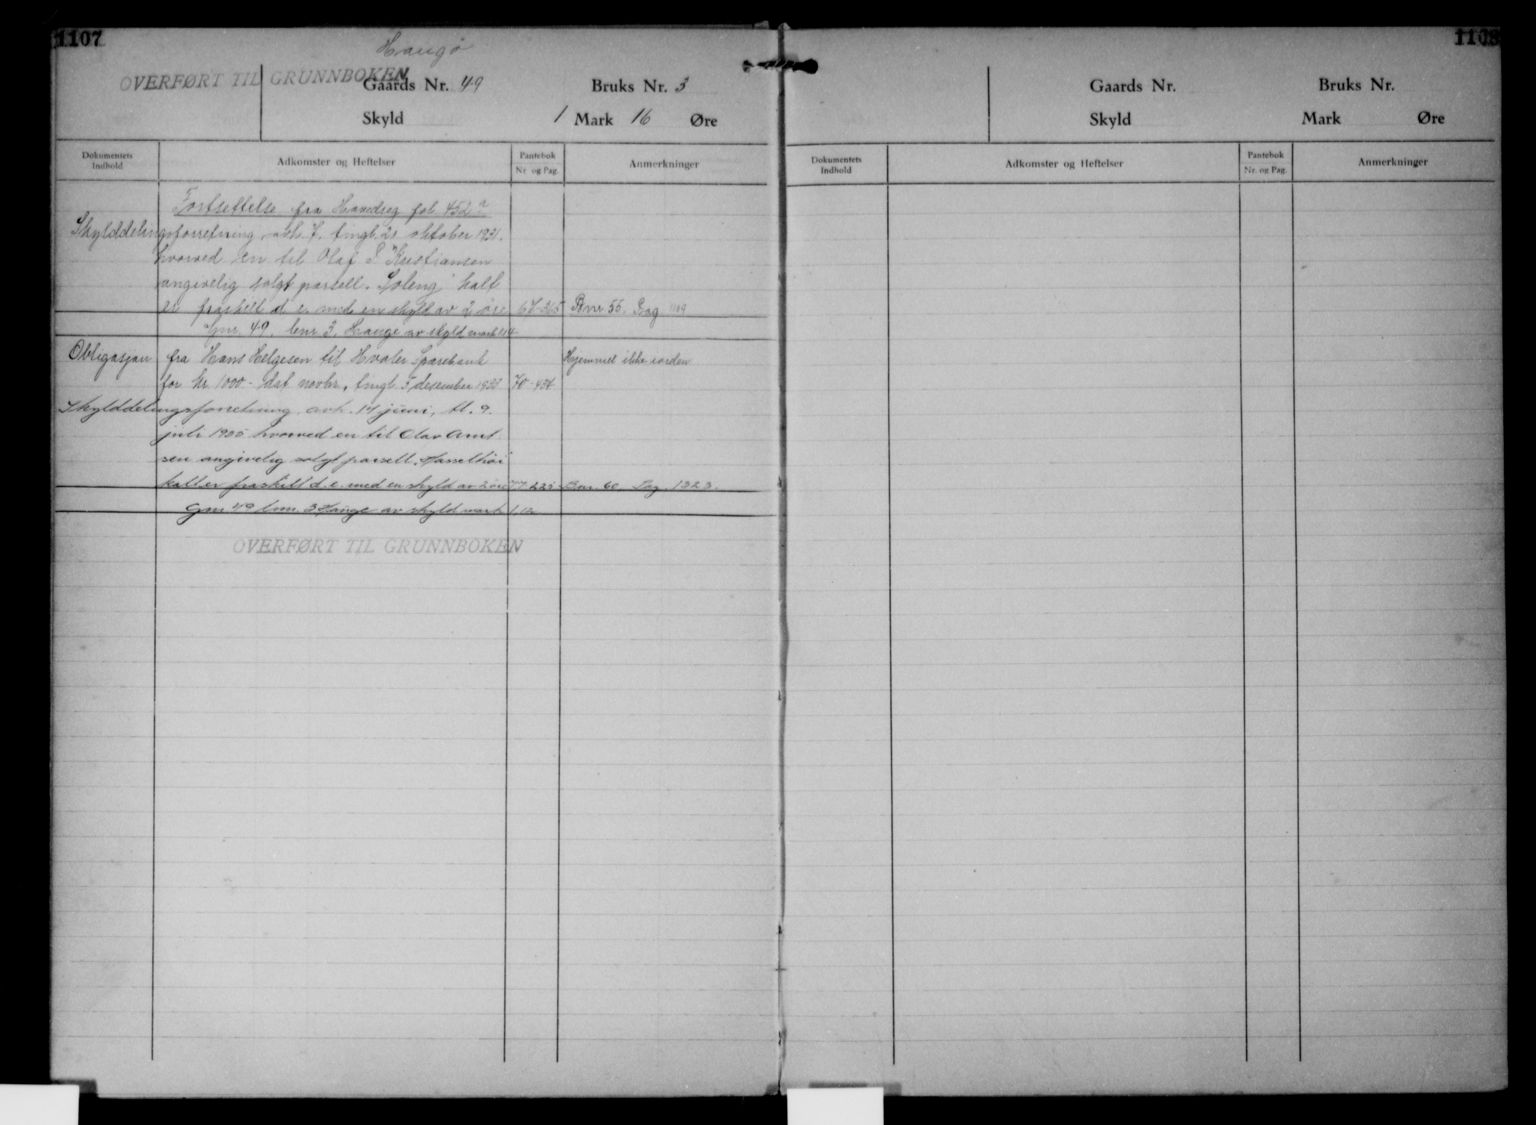 1107
Haugø
OVERFØRT TIL GRUNNBOKEN
Gaards Nr. 49 Bruks Nr. 3
Skyld 1 Mark 16 Øre
Dokumentets Indhold
Adkomster og Heftelser
Pantebok Nr. og Pag.
Anmerkninger
Fortsettelse fra Hovedreg fol. 452
Skylddelingsforretning avh. tingl. 21 oktober 1931.
hvorved en til Olaf Kristiansen
angivelig solgt parsell. Soleng kalt
er fraskilt d. e. med en skyld av 2 øre 67-365 Bnr 55. Pag 1109
Gnr. 49. bnr. 3, Hauge av skyld mark 1.14
Obligasjon fra Hans Helgesen til Hvaler Sparebank Hjemmel ikke iorden
for kr. 1000 - dat novbr. tingl. 5 desember 1933 70-434
Skylddelingsforretning avh. 14 juni, tl. 9.
juli 1935 hvorved en til Olav Arnt
sen angivelig solgt parsell, Hasselhøi
kalt er fraskilt d. e. med en skyld av 2 øre 77-225 Bnr. 60. Pag. 1323.
Gnr 49 bnr. 3 Hauge av skyld mark 1,12
OVERFØRT TIL GRUNNBOKEN
1108
Gaards Nr. Bruks Nr.
Skyld Mark Øre
Dokumentets Indhold
Adkomster og Heftelser
Pantebok Nr. og Pag.
Anmerkninger